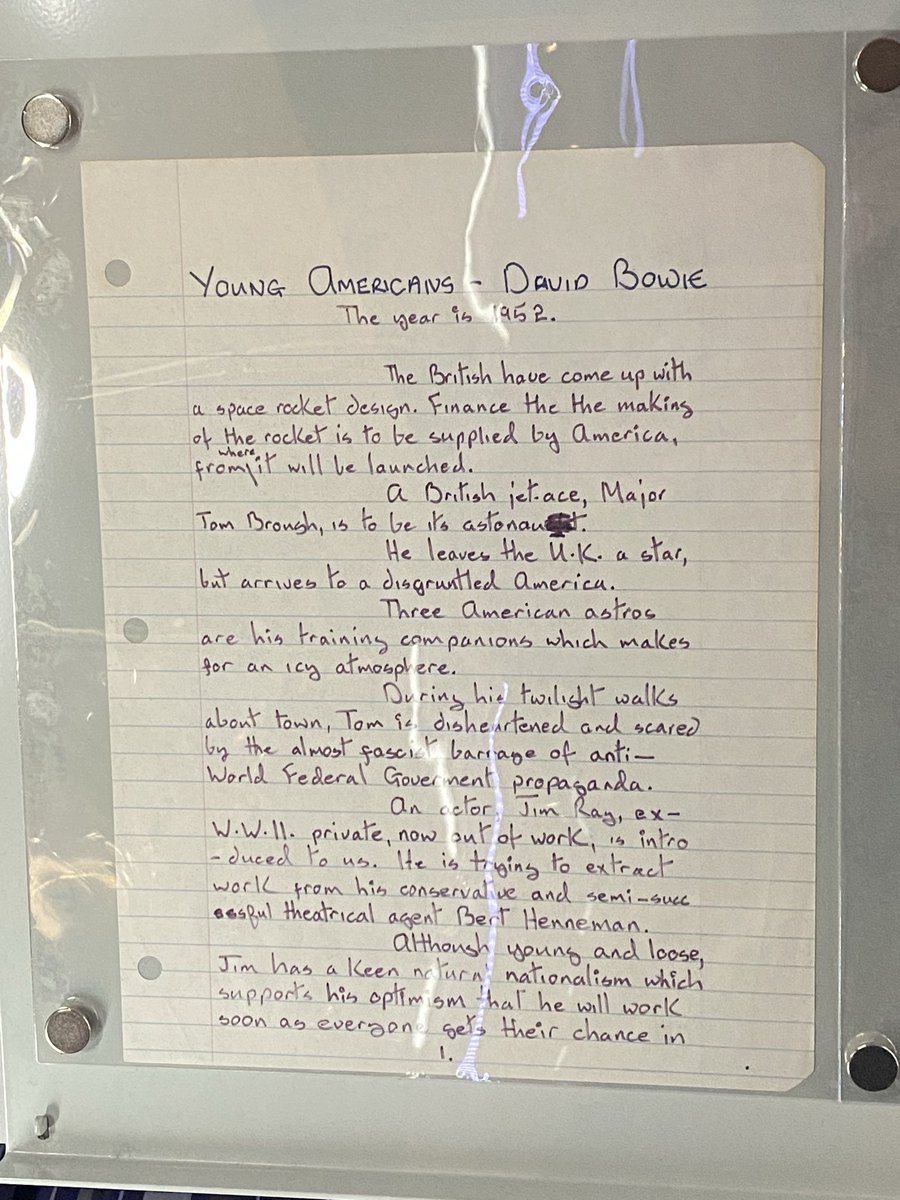 YOUNG AMERICANS - DAVID BOWIE
The year is 1952.
The British have come up with
a space rocket design. Finance the the making
of the rocket is to be supplied by America,
from where it will be launched.
A British jet-ace, Major
Tom Brough, is to be its astonaut.
He leaves the U.K. a star,
but arrives to a disgruntled America.
Three American astros
are his training companions which makes
for an icy atmosphere.
During his twilight walks
about town, Tom is disheartened and scared
by the almost fascist barrage of anti-
World Federal Goverment propaganda.
An actor, Jim Ray, ex-
W.W.II. private, now out of work, is intro
-duced to us. He is trying to extract
work from his conservative and semi-succ
essful theatrical agent Bert Henneman.
Although young and loose,
Jim has a keen natural nationalism which
supports his optimism that he will work
soon as everyone gets their chance in
1.